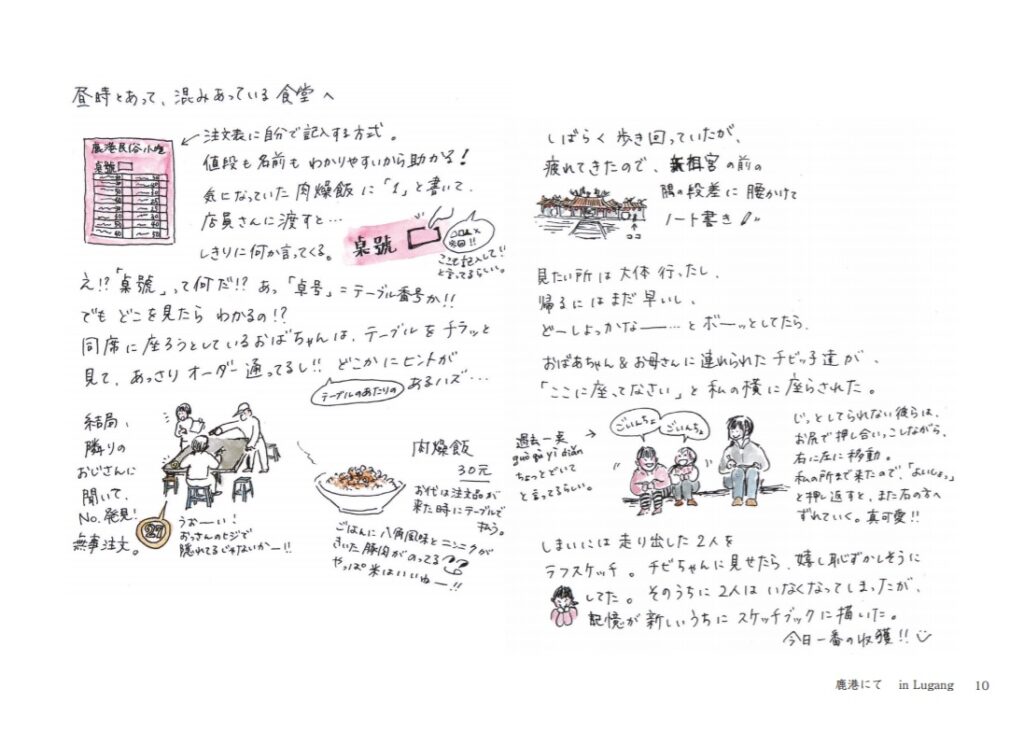 昼時とあって、混みあっている食堂へ
鹿港民俗小吃
桌號
←注文表に自分で記入する方式。
値段も名前もわかりやすいから助かる!
気になっていた肉燥飯に「1」と書いて、
店員さんに渡すと…
しきりに何か言ってくる。
桌號
ここも記入して!!
と言ってるらしい。
え!?「桌號」って何だ!? あっ「卓号」=テーブル番号か!!
でもどこを見たらわかるの!?
同席に座ろうとしているおばちゃんは、テーブルをチラッと
見て、あっさりオーダー通ってるし!! どこかにヒントが
テーブルのあたりの
あるハズ…
結局、
隣りの
おじさんに
聞いて、
No.発見!
無事注文。
27
うおーい!
おっさんのヒジで
隠れてるじゃないかー!!
肉燥飯
30元
お代は注文品が
来た時にテーブルで
払う。
ごはんに八角風味とニンニクが
きいた豚肉がのってる
やっぱ米はいいねー!!
しばらく歩き回っていたが、
疲れてきたので、新祖宮の前の
階の段差に腰かけて
ノート書き
ココ
見たい所は大体行ったし、
帰るにはまだ早いし、
どーしよっかなー…とボーッとしてたら、
おばあちゃん&お母さんに連れられたチビッ子達が、
「ここに座ってなさい」と私の横に座らされた。
過去一点
guò qù yì diǎn
ちょっとどいて
と言ってるらしい。
ごいんちょ
ごいんちょ
じっとしてられない彼らは、
お尻で押し合いっこしながら、
右に左に移動。
私の所まで来たので、「よいしょっ」
と押し返すと、また右の方へ
ずれていく。真可愛!!
しまいには走り出した2人を
ラフスケッチ。チビちゃんに見せたら、嬉し恥ずかしそうに
してた。そのうちに2人はいなくなってしまったが、
記憶が新しいうちにスケッチブックに描いた。
今日一番の収獲!!
鹿港にて in Lugang 10